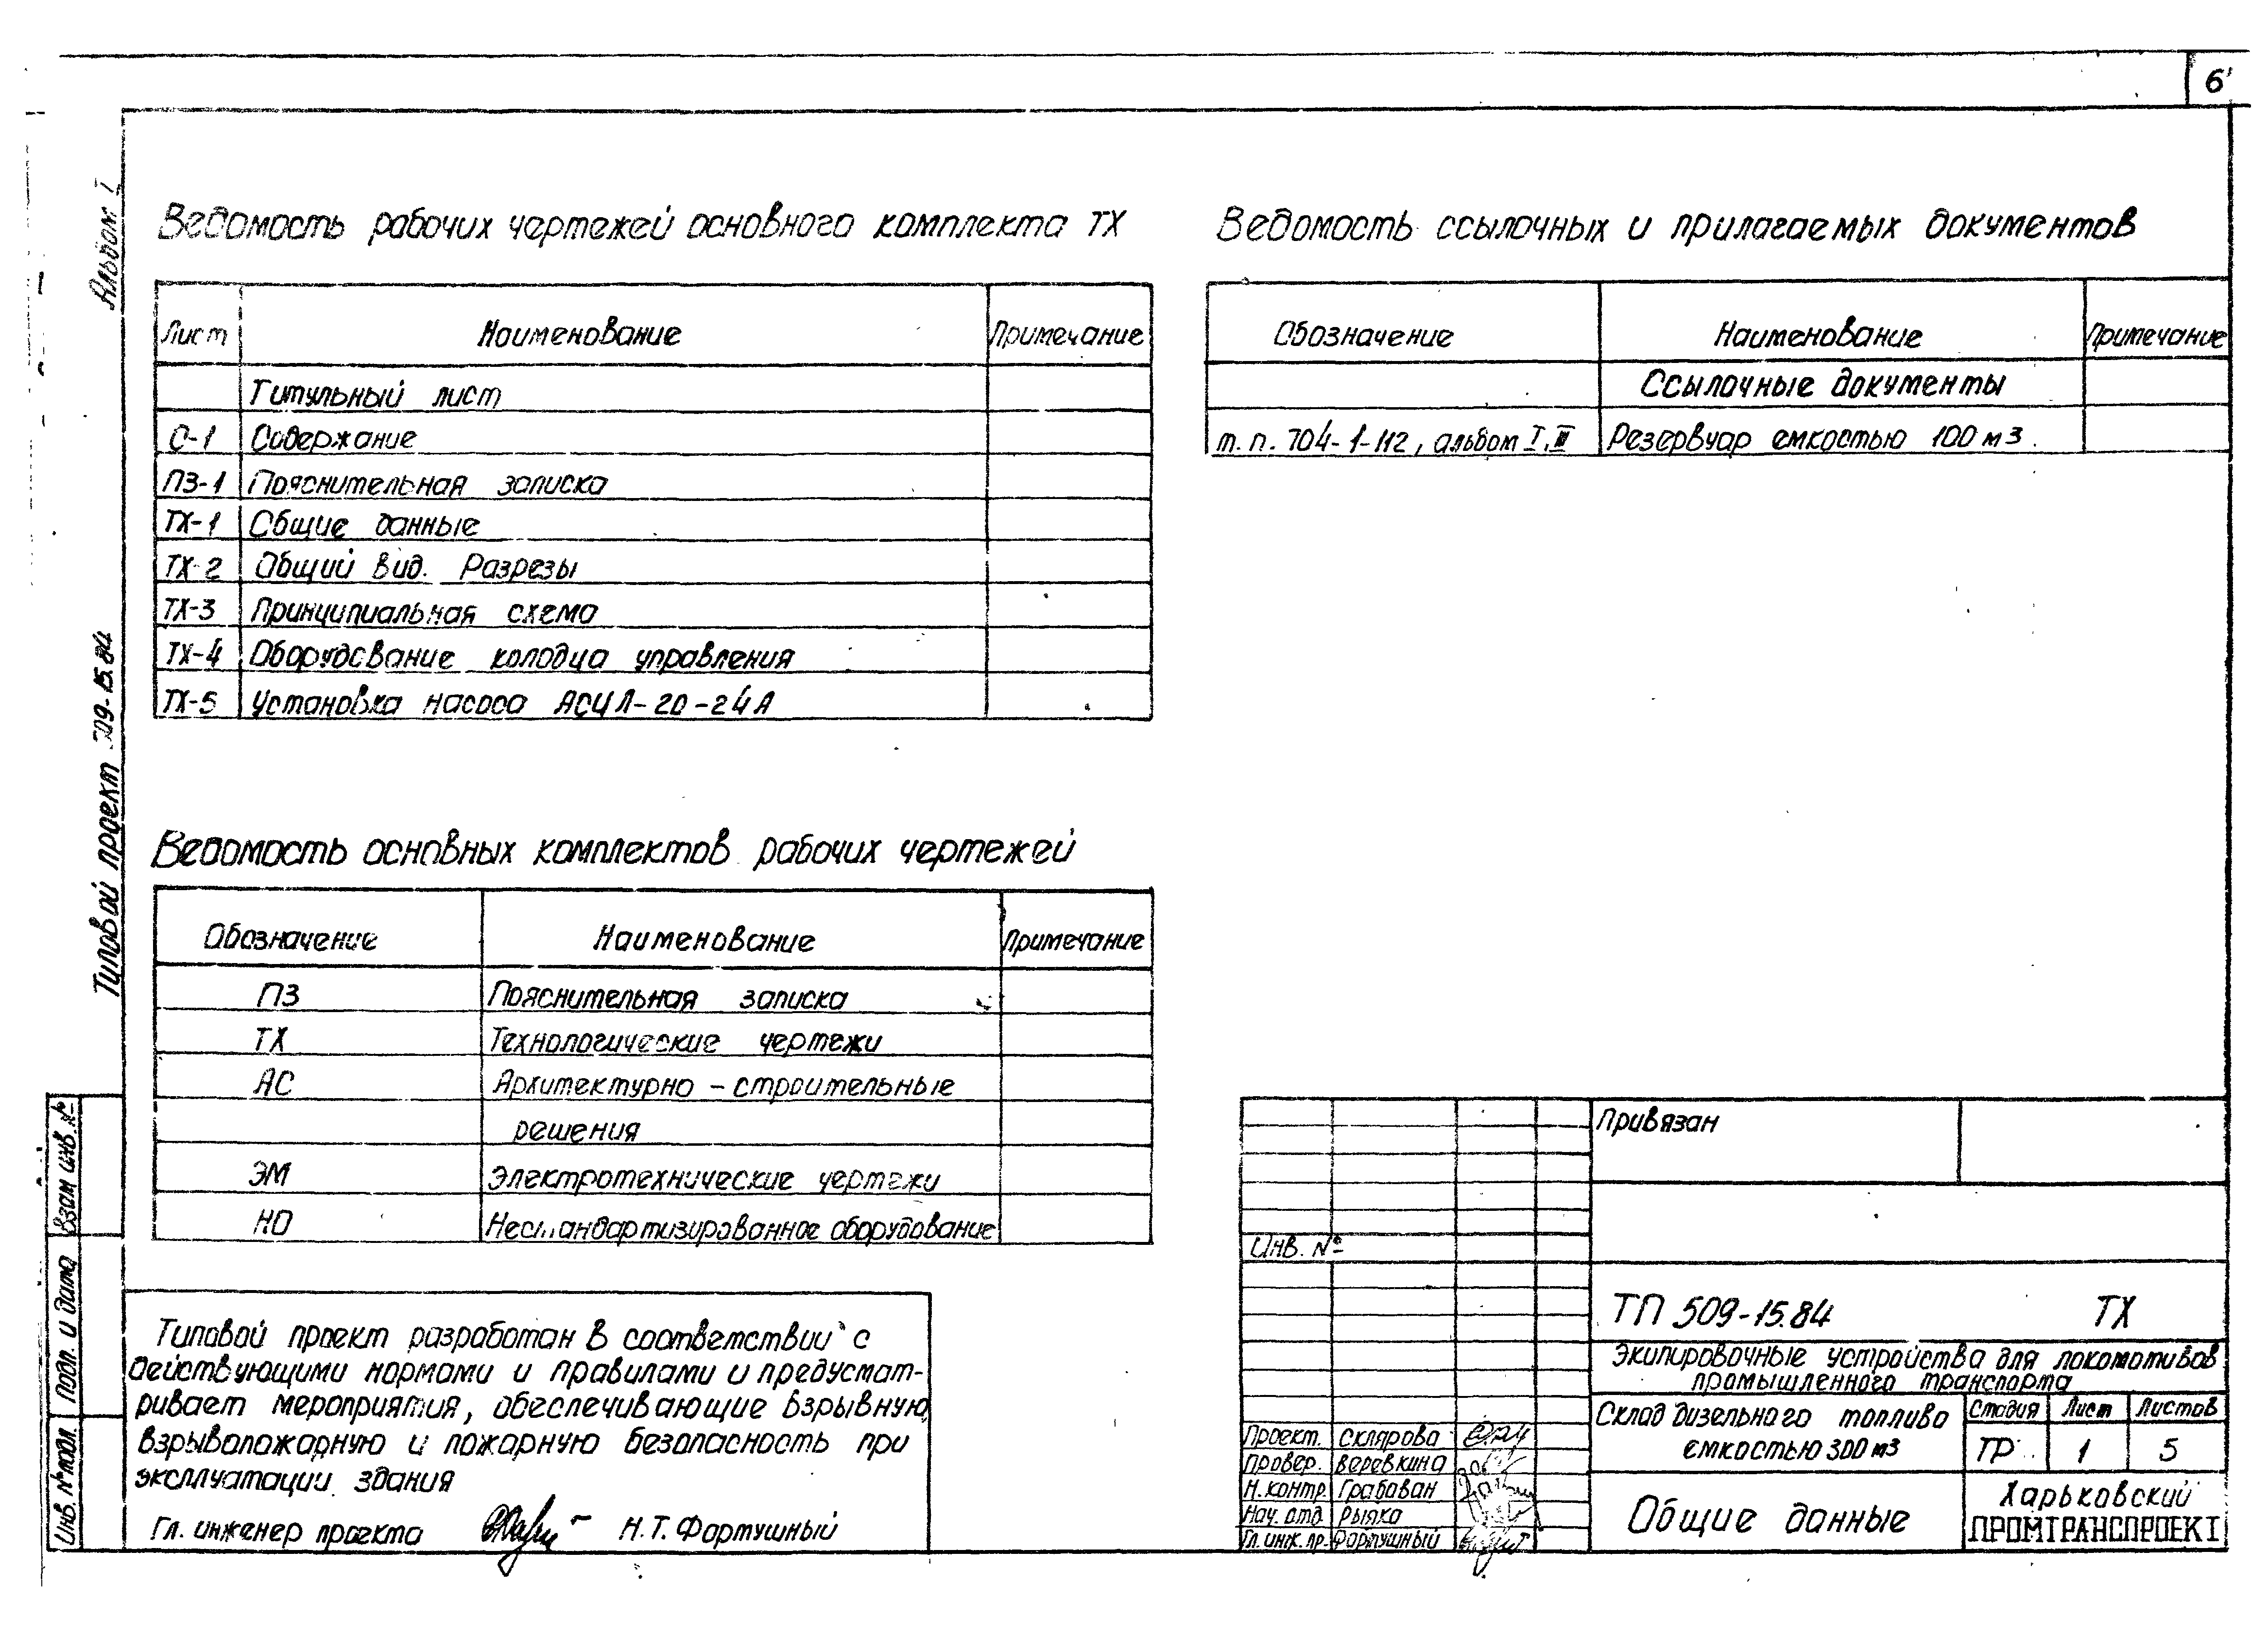 6
Альбом I
Типовой проект 509-15.84
Ведомость рабочих чертежей основного комплекта ТХ
Лист Наименование Примечание
Титульный лист
С-1 Содержание
ПЗ-1 Пояснительная записка
ТХ-1 Общие данные
ТХ-2 Общий вид. Разрезы
ТХ-3 Принципиальная схема
ТХ-4 Оборудование колодца управления
ТХ-5 Установка насоса АСЦЛ-20-24А
Ведомость ссылочных и прилагаемых документов
Обозначение Наименование Примечание
Ссылочные документы
т.п. 704-1-112, альбом I, III Резервуар емкостью 100 м3.
Ведомость основных комплектов рабочих чертежей
Обозначение Наименование Примечание
ПЗ Пояснительная записка
ТХ Технологические чертежи
АС Архитектурно-строительные
решения
ЭМ Электротехнические чертежи
НО Нестандартизированное оборудование
Типовой проект разработан в соответствии с
действующими нормами и правилами и предусмат-
ривает мероприятия, обеспечивающие взрывную,
взрывопожарную и пожарную безопасность при
эксплуатации здания
Гл. инженер проекта Н.Т. Фортушный
Взам инв. №
Подп. и дата
Инв. № подл.
Привязан
Инв. №
ТП 509-15.84 ТХ
Экипировочные устройства для локомотивов
промышленного транспорта
Склад дизельного топлива
емкостью 300 м3
Стадия Лист Листов
ТР 1 5
Проект. Склярова
Провер. Веревкина
Н.контр. Грабован
Нач. отд. Рыпка
Гл. инж. пр. Фортушный
Общие данные
Харьковский
ПРОМТРАНСПРОЕКТ